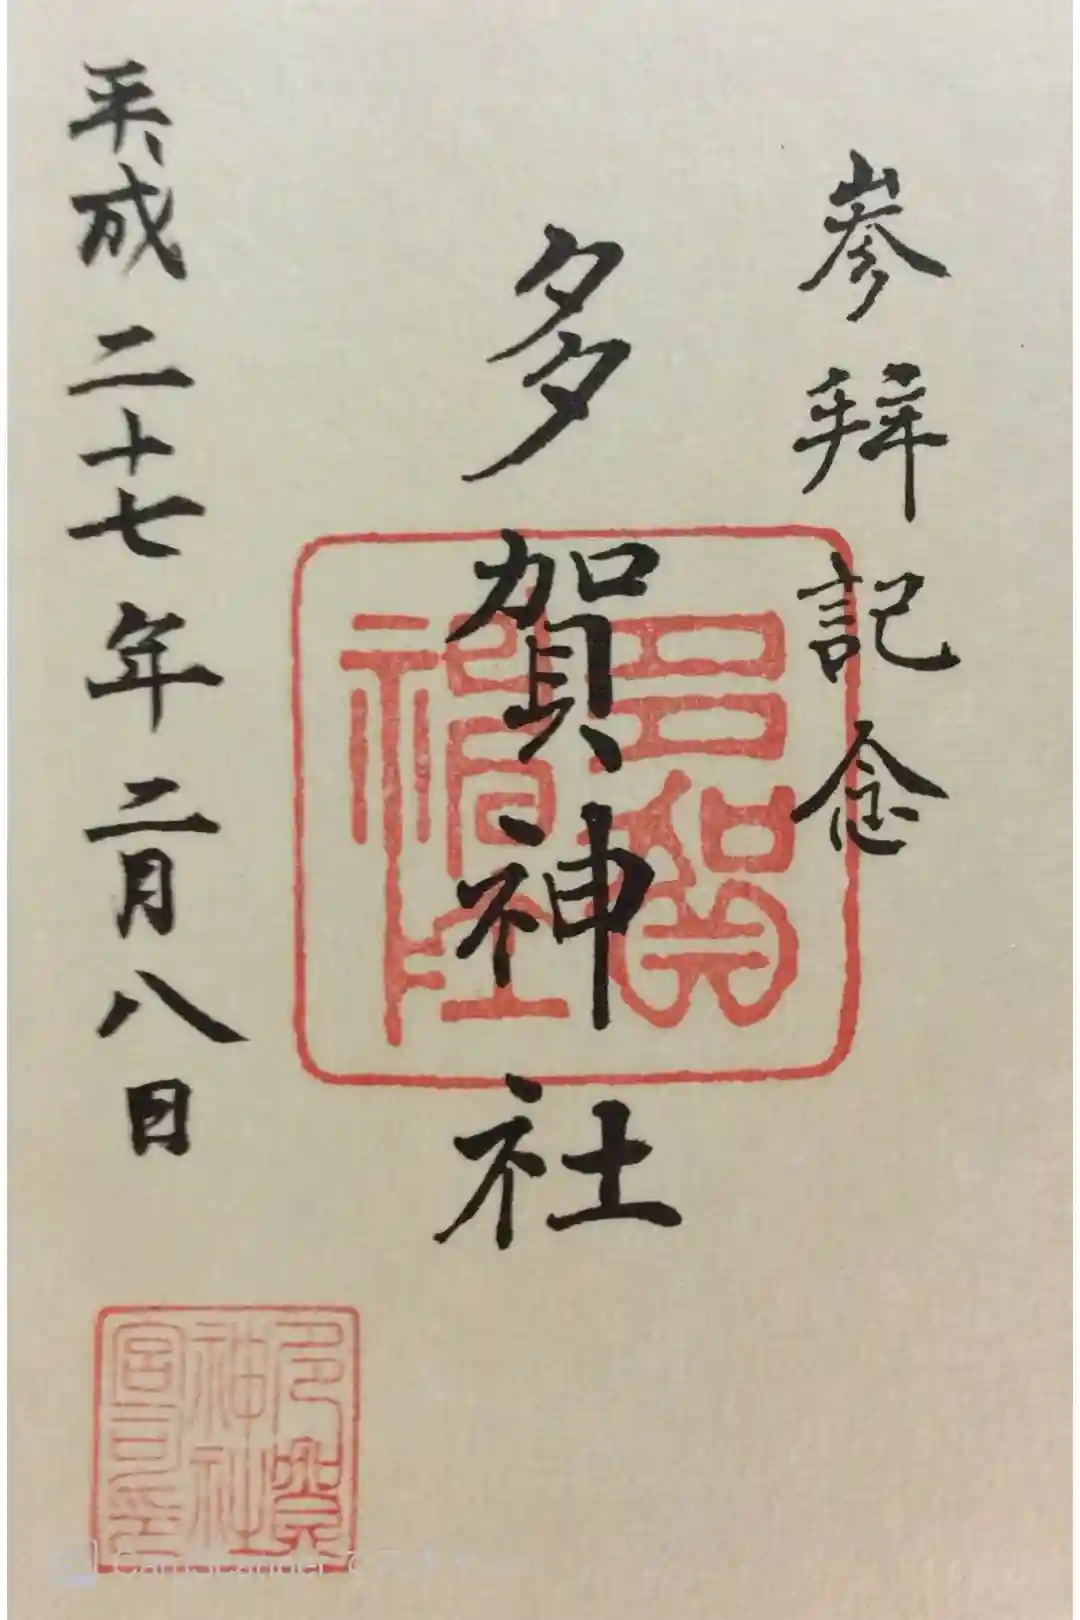 参拜記念
多賀神社
平成二十七年二月八日
多賀神社
多賀
神社
宮司印